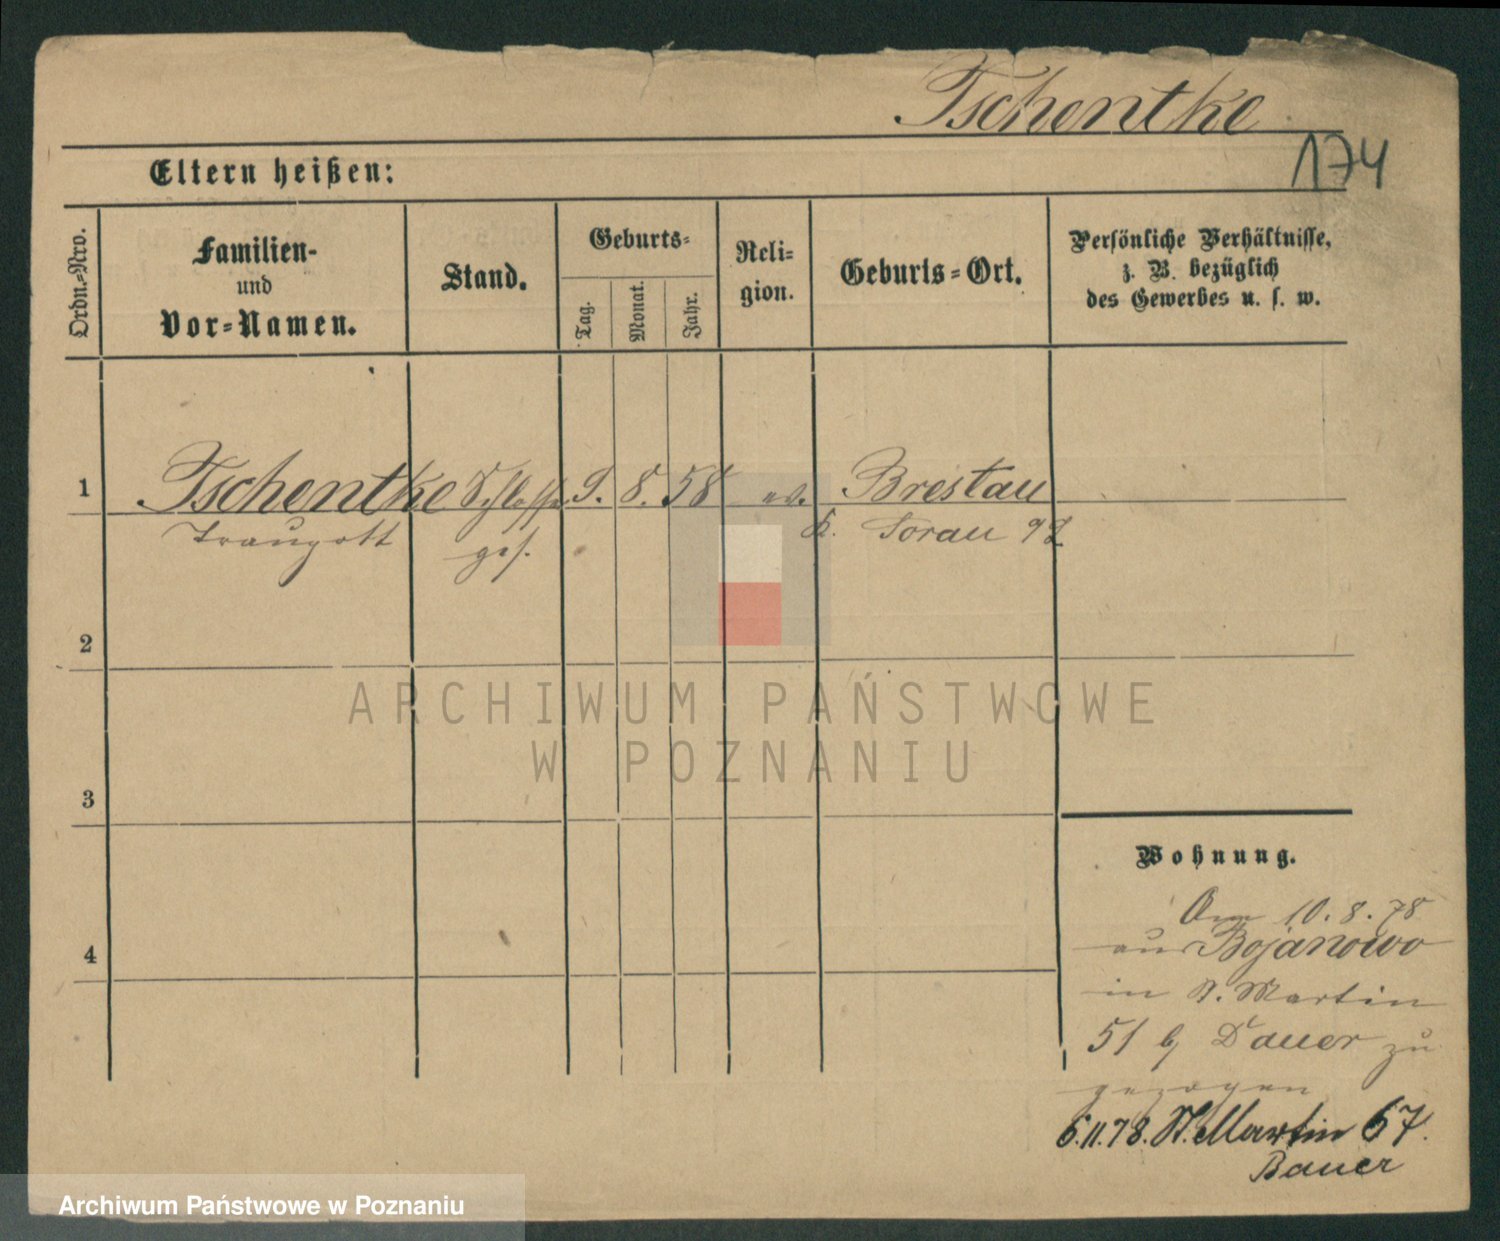 Tschentke
174
Eltern heißen:
Ordn.-Nro.
Familien-
und
Vor-Namen.
Stand.
Geburts-
Tag.
Monat.
Jahr.
Reli-
gion.
Geburts-Ort.
Persönliche Verhältnisse,
z. B. bezüglich
des Gewerbes u. s. w.
1
Tschentke Schlosser 9. 8. 58 ev. Brestau
Traugott ges. K. Sorau
2
3
4
ARCHIWUM PAŃSTWOWE
W POZNANIU
Wohnung.
Am 10.8.78
aus Bojanowo
in St. Martin
51 b/ Bauer zu
gezogen
6.11.78. St. Martin 67.
Bauer
Archiwum Państwowe w Poznaniu